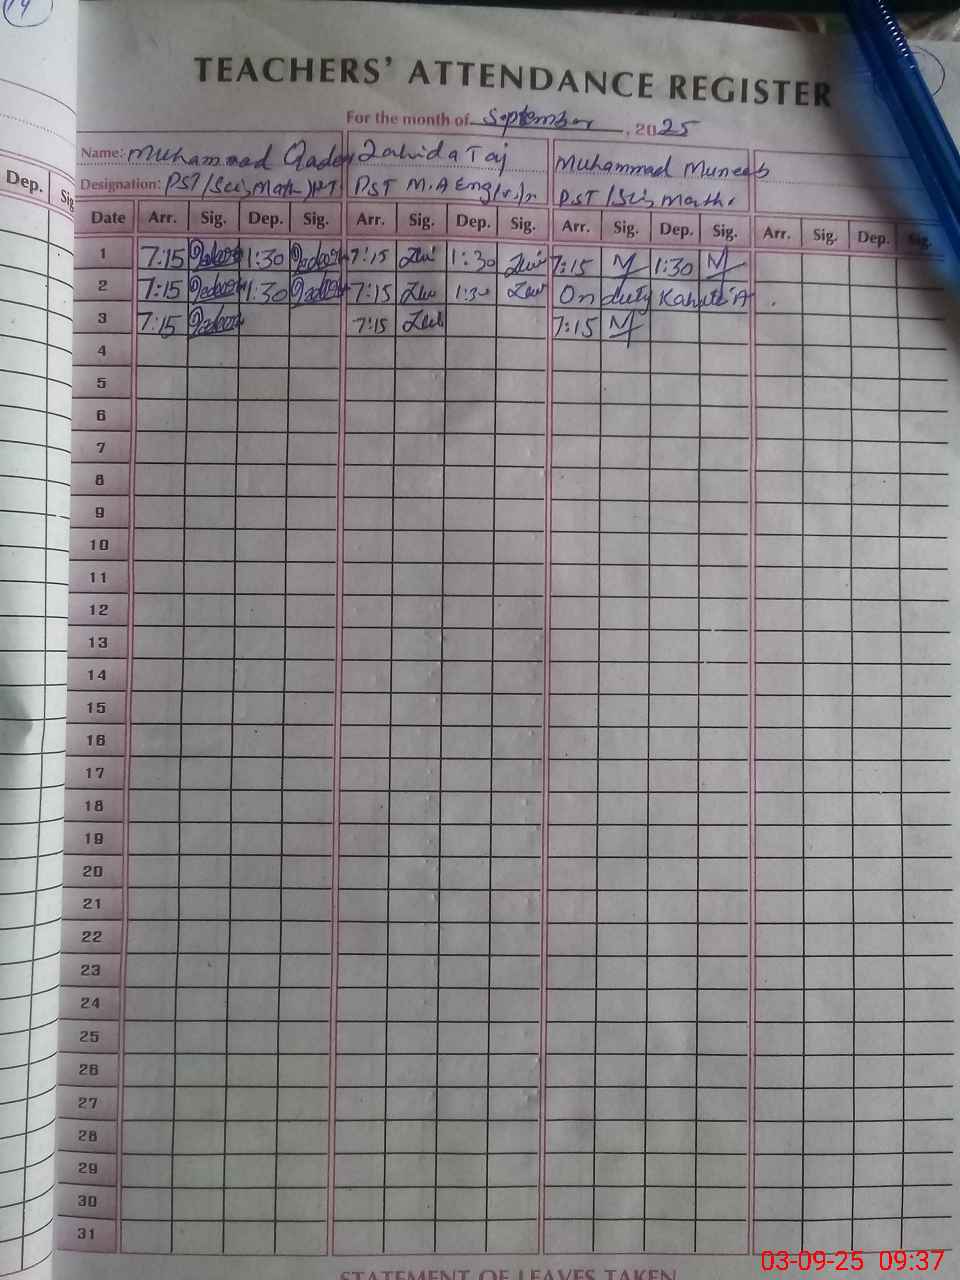 14
TEACHERS' ATTENDANCE REGISTER
For the month of September, 2025
Name: Muhammad Qadeer Zahida Taj Muhammad Muneeb
Designation: PST/Sci, Math PST M.A Eng PST/Sci, Math.
Dep. Sig
Date Arr. Sig. Dep. Sig. Arr. Sig. Dep. Sig. Arr. Sig. Dep. Sig. Arr. Sig. Dep. Sig.
1 7:15 Qadeer 1:30 Qadeer 7:15 1:30 7:15 M 1:30 M
2 7:15 Qadeer 1:30 Qadeer 7:15 1:30 On duty
3 7:15 Qadeer 7:15 7:15 M
4
5
6
7
8
9
10
11
12
13
14
15
16
17
18
19
20
21
22
23
24
25
26
27
28
29
30
31
STATEMENT OF LEAVES TAKEN
03-09-25 09:37